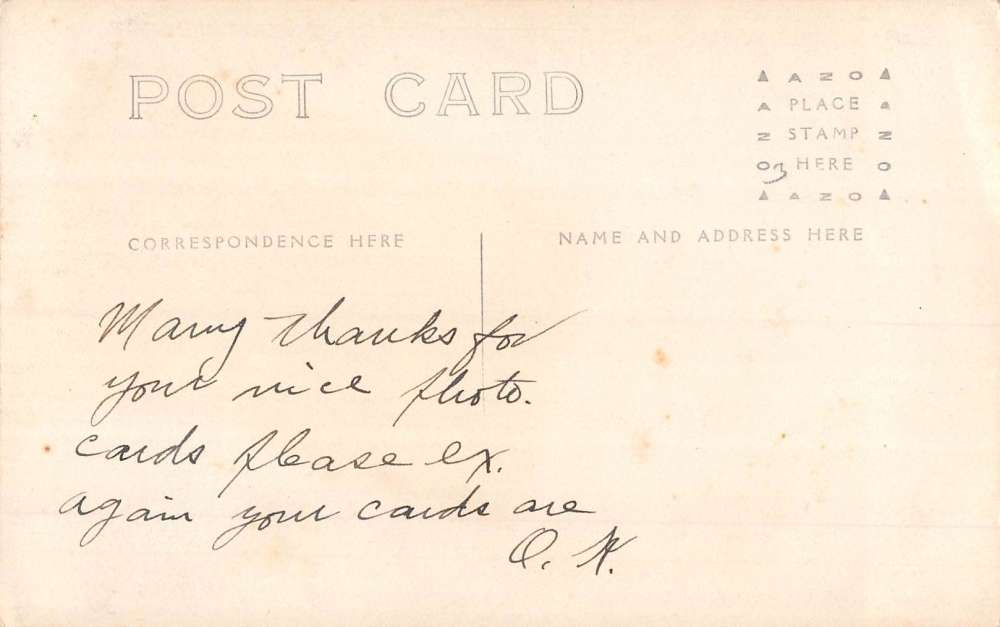 POST CARD
▲ A Z O ▲
A PLACE A
Z STAMP Z
O HERE O
▲ A Z O ▲
CORRESPONDENCE HERE
NAME AND ADDRESS HERE
Many thanks for
your nice photo.
cards please ex.
again your cards are
O. K.